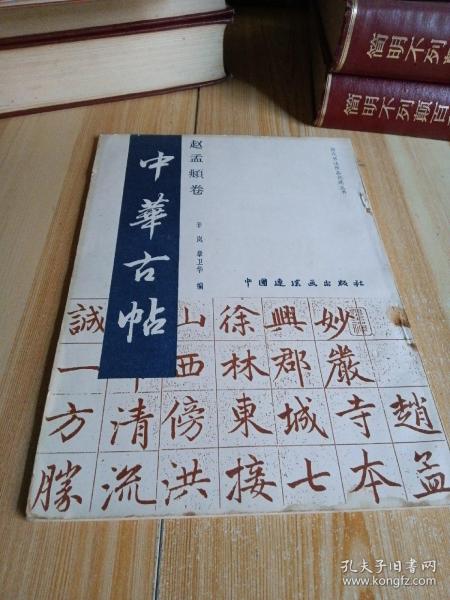 简明不列颠
简明不列颠百
赵孟頫卷
中華古帖
辛岚 章卫华 编
中國連環画出版社
趙孟
妙嚴寺本
興郡城七
徐林東接
山西傍洪
清流
誠一方勝
孔夫子旧书网
www.kongfz.com